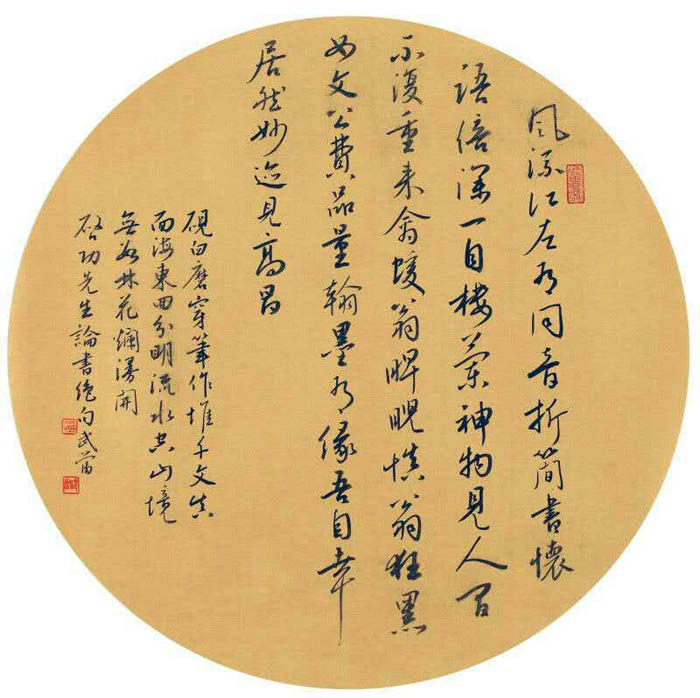 風流江左有同音折簡書懷
語倍深一自樓蘭神物見人間
不復重来禽蝯翁睥睨慎翁狂黑
女文公費品量翰墨有緣吾自幸
居然妙迹見高昌
硯臼磨穿筆作堆千文真
面海東回分明流水空山境
無數林花爛漫開
啓功先生論書絶句武